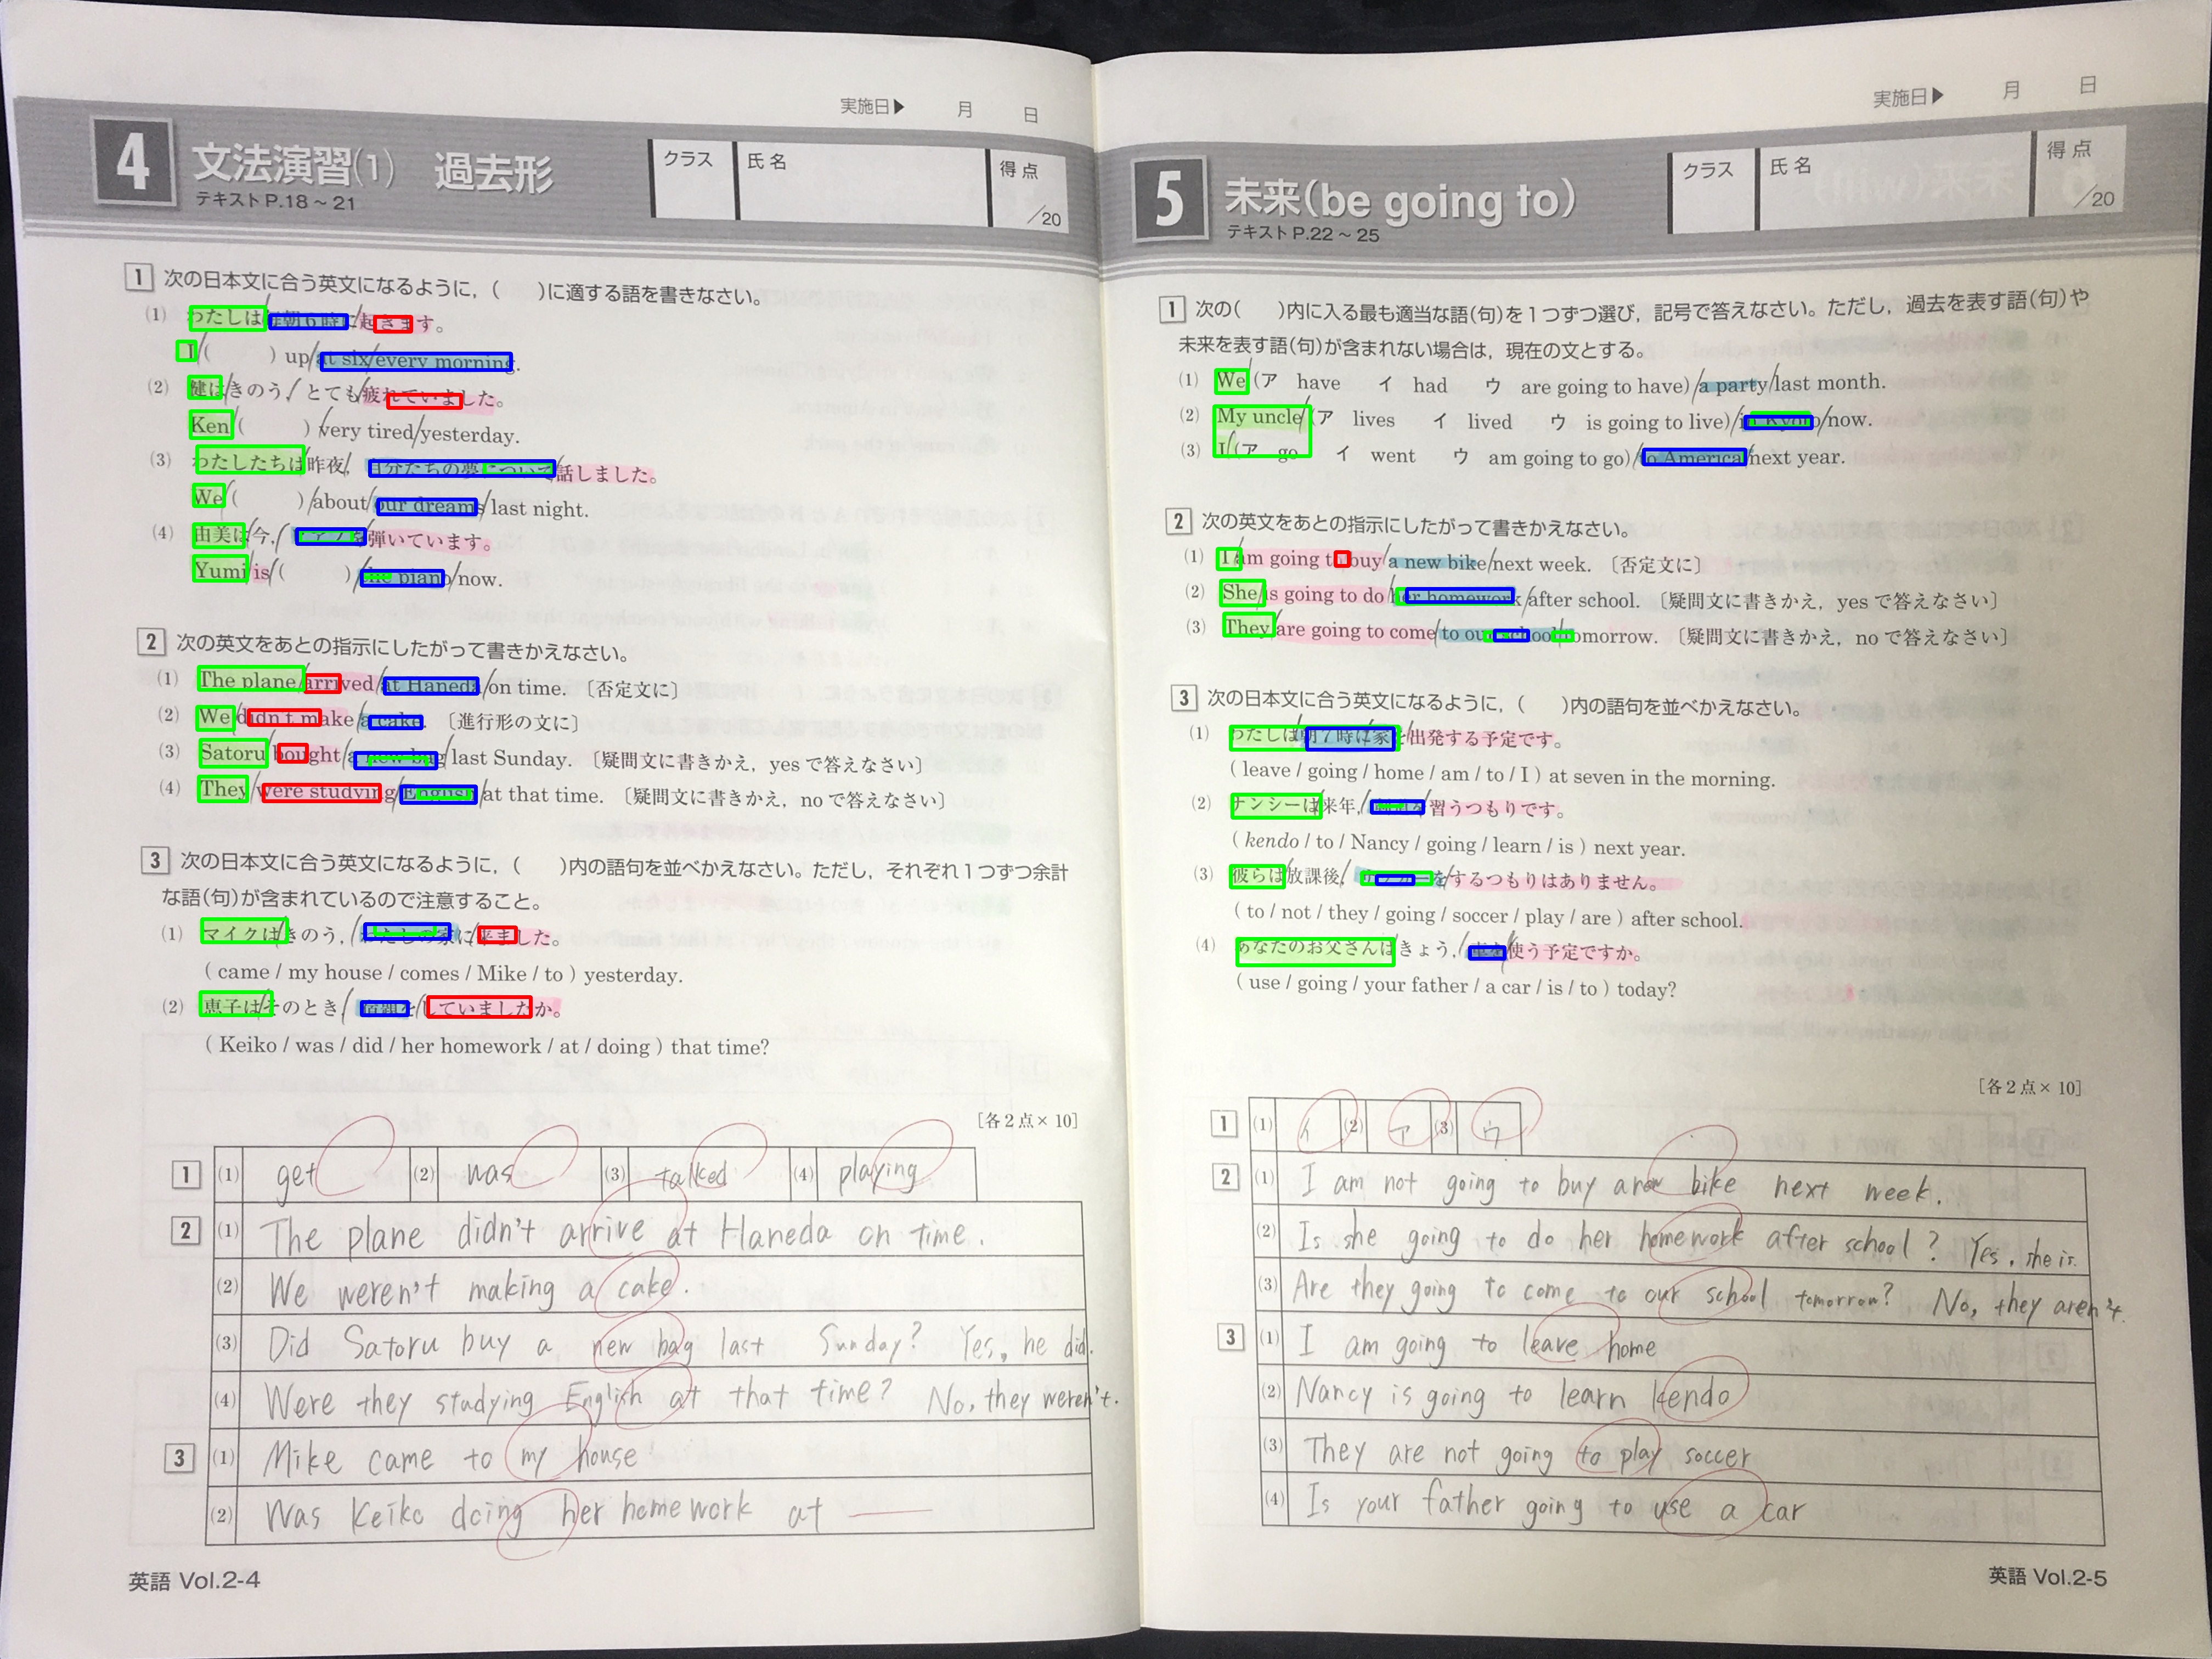 実施日▶ 月 日
4 文法演習(1) 過去形
テキストP.18～21
クラス 氏名 得点 /20
1 次の日本文に合う英文になるように，( )に適する語を書きなさい。
(1) わたしは/毎朝6時に/起きます。
I/( ) up/at six/every morning.
(2) 健は/きのう，/とても/疲れていました。
Ken/( ) very tired/yesterday.
(3) わたしたちは/昨夜/，自分たちの夢について/話しました。
We/( )/about/our dreams/last night.
(4) 由美は/今，/ピアノを/弾いています。
Yumi/is/( )/the piano/now.
2 次の英文をあとの指示にしたがって書きかえなさい。
(1) The plane/arrived/at Haneda/on time. 〔否定文に〕
(2) We/didn't make/a cake. 〔進行形の文に〕
(3) Satoru/bought/a new bag/last Sunday. 〔疑問文に書きかえ，yesで答えなさい〕
(4) They/were studying/English/at that time. 〔疑問文に書きかえ，noで答えなさい〕
3 次の日本文に合う英文になるように，( )内の語句を並べかえなさい。ただし，それぞれ1つずつ余計
な語(句)が含まれているので注意すること。
(1) マイクは/きのう，/わたしの家に/来ました。
( came / my house / comes / Mike / to ) yesterday.
(2) 恵子は/そのとき/宿題を/していましたか。
( Keiko / was / did / her homework / at / doing ) that time?
[各2点×10]
1 (1) get (2) was (3) talked (4) playing
2 (1) The plane didn't arrive at Haneda on time.
(2) We weren't making a cake.
(3) Did Satoru buy a new bag last Sunday? Yes, he did.
(4) Were they studying English at that time? No, they weren't.
3 (1) Mike came to my house
(2) Was Keiko doing her homework at ―
英語 Vol.2-4
実施日▶ 月 日
5 未来(be going to)
テキストP.22～25
クラス 氏名 得点 /20
1 次の( )内に入る最も適当な語(句)を1つずつ選び，記号で答えなさい。ただし，過去を表す語(句)や
未来を表す語(句)が含まれない場合は，現在の文とする。
(1) We/(ア have イ had ウ are going to have)/a party/last month.
(2) My uncle/(ア lives イ lived ウ is going to live)/in Kyoto/now.
(3) I/(ア go イ went ウ am going to go)/to America/next year.
2 次の英文をあとの指示にしたがって書きかえなさい。
(1) I/am going to buy/a new bike/next week. 〔否定文に〕
(2) She/is going to do/her homework/after school. 〔疑問文に書きかえ，yesで答えなさい〕
(3) They/are going to come/to our school/tomorrow. 〔疑問文に書きかえ，noで答えなさい〕
3 次の日本文に合う英文になるように，( )内の語句を並べかえなさい。
(1) わたしは/朝7時に/家を/出発する予定です。
( leave / going / home / am / to / I ) at seven in the morning.
(2) ナンシーは/来年，/剣道を/習うつもりです。
( kendo / to / Nancy / going / learn / is ) next year.
(3) 彼らは/放課後，/サッカーを/するつもりはありません。
( to / not / they / going / soccer / play / are ) after school.
(4) あなたのお父さんは/きょう，/車を/使う予定ですか。
( use / going / your father / a car / is / to ) today?
[各2点×10]
1 (1) イ (2) ア (3) ウ
2 (1) I am not going to buy a new bike next week.
(2) Is she going to do her homework after school? Yes, she is.
(3) Are they going to come to our school tomorrow? No, they aren't.
3 (1) I am going to leave home
(2) Nancy is going to learn kendo
(3) They are not going to play soccer
(4) Is your father going to use a car
英語 Vol.2-5